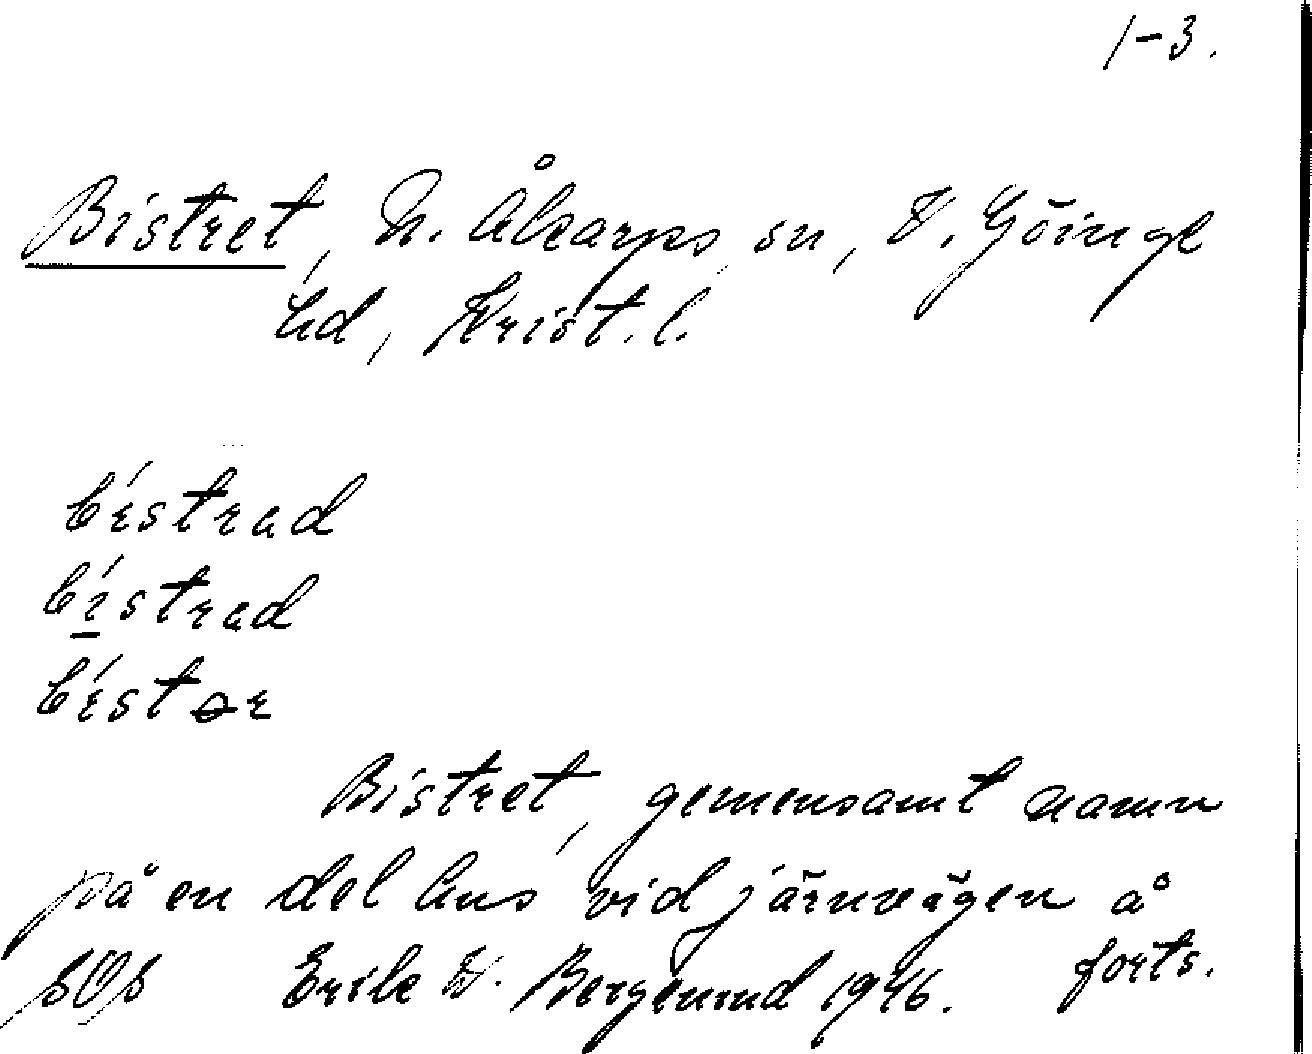 1-3.
Bistret, N. Åkarps sn, V. Göinge
hd, Krist. l.
bistrad
bistrad
bistər
Bistret, gemensamt namn
på en del hus vid järnvägen å
forts.
SOS Erik W. Bergelund 1946.